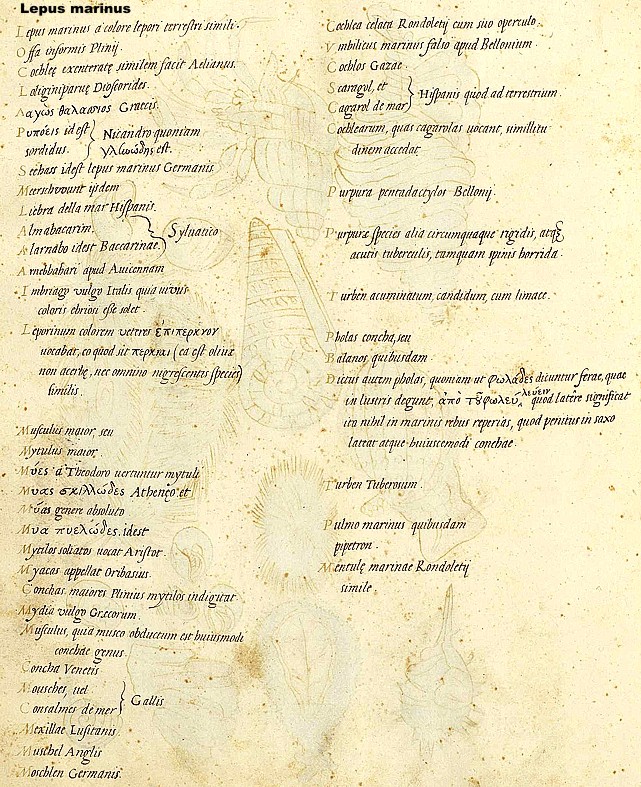 Lepus marinus
Lepus marinus à colore lepori terrestri simili.
Offa informis Plinij.
Cochleę exenteratę similem facit Aelianus.
Loliginiparuę Dioscorides.
Λαγὼς θαλάσσιος Graecis.
Ρυπόεις id est
sordidus.
Nicandro quoniam
γλοιώδης est.
Seehass idest lepus marinus Germanis.
Meerschwunt ijsdem
Liebra della mar Hispanis.
Almabacarim.
Alarnabo idest Baccarinae.
Syluatico
Arnebbahari apud Auicennam
Imbriago vulgo Italis quia uiuus
coloris ebriosi esse solet.
Leporinum colorem ueteres ἐπίπερκνον
uocabāt, eo quod sit περκναὶ (ea est oliuae
non acerbę, nec omnino nigrescentis species)
similis.
Musculus maior, seu
Mytulus maior,
Μύες à Theodoro uertuntur mytuli
Μυας σκιλλώδες Athenęo: et
Μύας genere absoluto
Μυα πυελώδες, idest
Mytilos soliatos uocat Aristot.
Myacas appellat Oribasius.
Conchas maiores Plinius mytilos indigitat
Mydia vulgo Graecorum.
Musculus, quia musco obductum est huiusmodi
conchae genus.
Concha Venetis
Mousches, uel
Consalmes de mer
Gallis
Mexillae Lusitanis
Muschel Anglis
Moschlen Germanis.
Cochlea celata Rondoletij cum suo operculo.
Vmbilicus marinus falso apud Bellonium.
Cochlos Gazae.
Scaragol, et
Cagarol de mar
Hispanis quod ad terrestrium.
Cochlearum, quas cagarolas uocant, simillitu
dinem accedat.
Purpura pentadactylos Bellonij.
Purpurae species alia circumquaque rigidis, atq;
acutis tuberculis, tamquam spinis horrida.
Turben acuminatum, candidum, cum limace.
Pholas concha, seu
Balanos quibusdam.
Dictus autem pholas, quoniam ut φωλάδες dicuntur ferae, quae
in lustris degunt, ἀπὸ τοῦ φωλεύειν quod latêre significat
ita nihil in marinis rebus reperias, quod penitus in saxo
lateat atque huiuscemodi conchae.
Turben Tuberosum.
Pulmo marinus quibusdam
pipetron.
Mentulę marinae Rondoletij
simile.